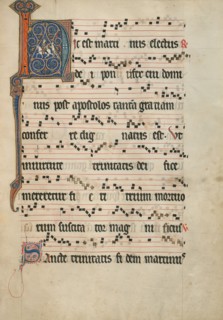 Hic est marti nus electus
dei ponti tifex cui domi
nus post apostolos tantam gratiam
confer re dig natus est. Vt
in uirtute trinitatis dei fice
mereretur fi e ri trium mortuo
rum suscita tor mag ni ficus
Sancte trinitatis fi dem martinus